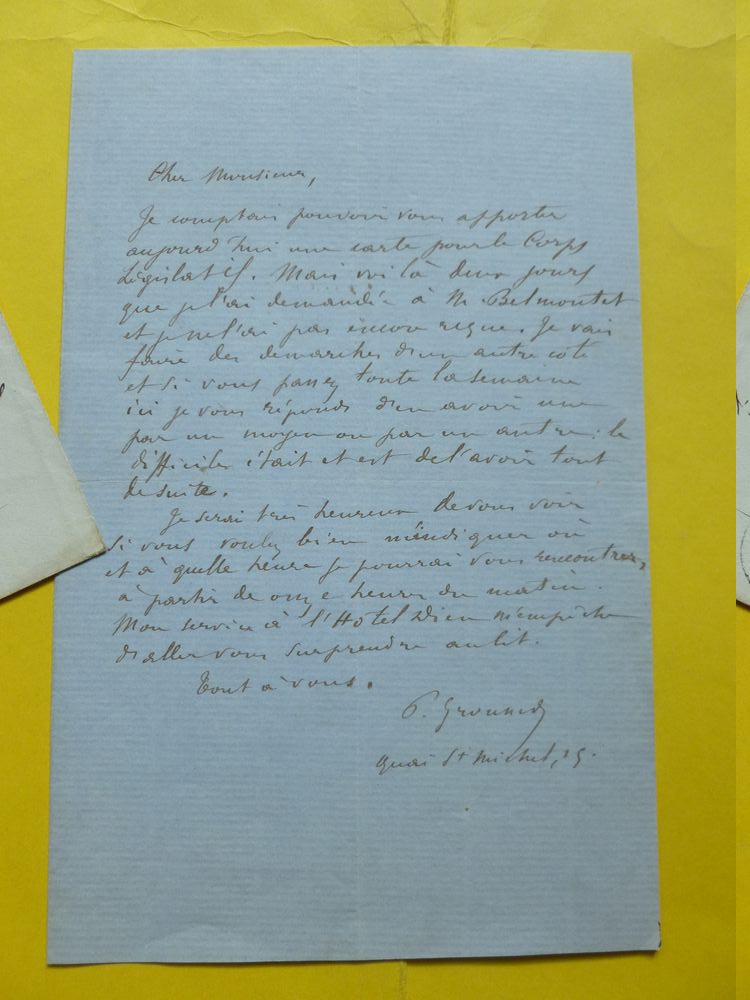 Cher Monsieur,
Je comptais pouvoir vous apporter
aujourd'hui une carte pour le Corps
Législatif. Mais voilà deux jours
que je l'ai demandée à M. Belmontet
et je ne l'ai pas encore reçue. Je vais
faire des démarches d'un autre côté
et si vous passez toute la semaine
ici je vous réponds d'en avoir une
par un moyen ou par un autre : le
difficile était et est de l'avoir tout
de suite.
Je serai très heureux de vous voir
si vous voulez bien m'indiquer où
et à quelle heure je pourrai vous rencontrer,
à partir de onze heures du matin.
Mon service à l'Hotel Dieu m'empêche
d'aller vous surprendre au lit.
Tout à vous.
P. Grousset
quai St Michel,